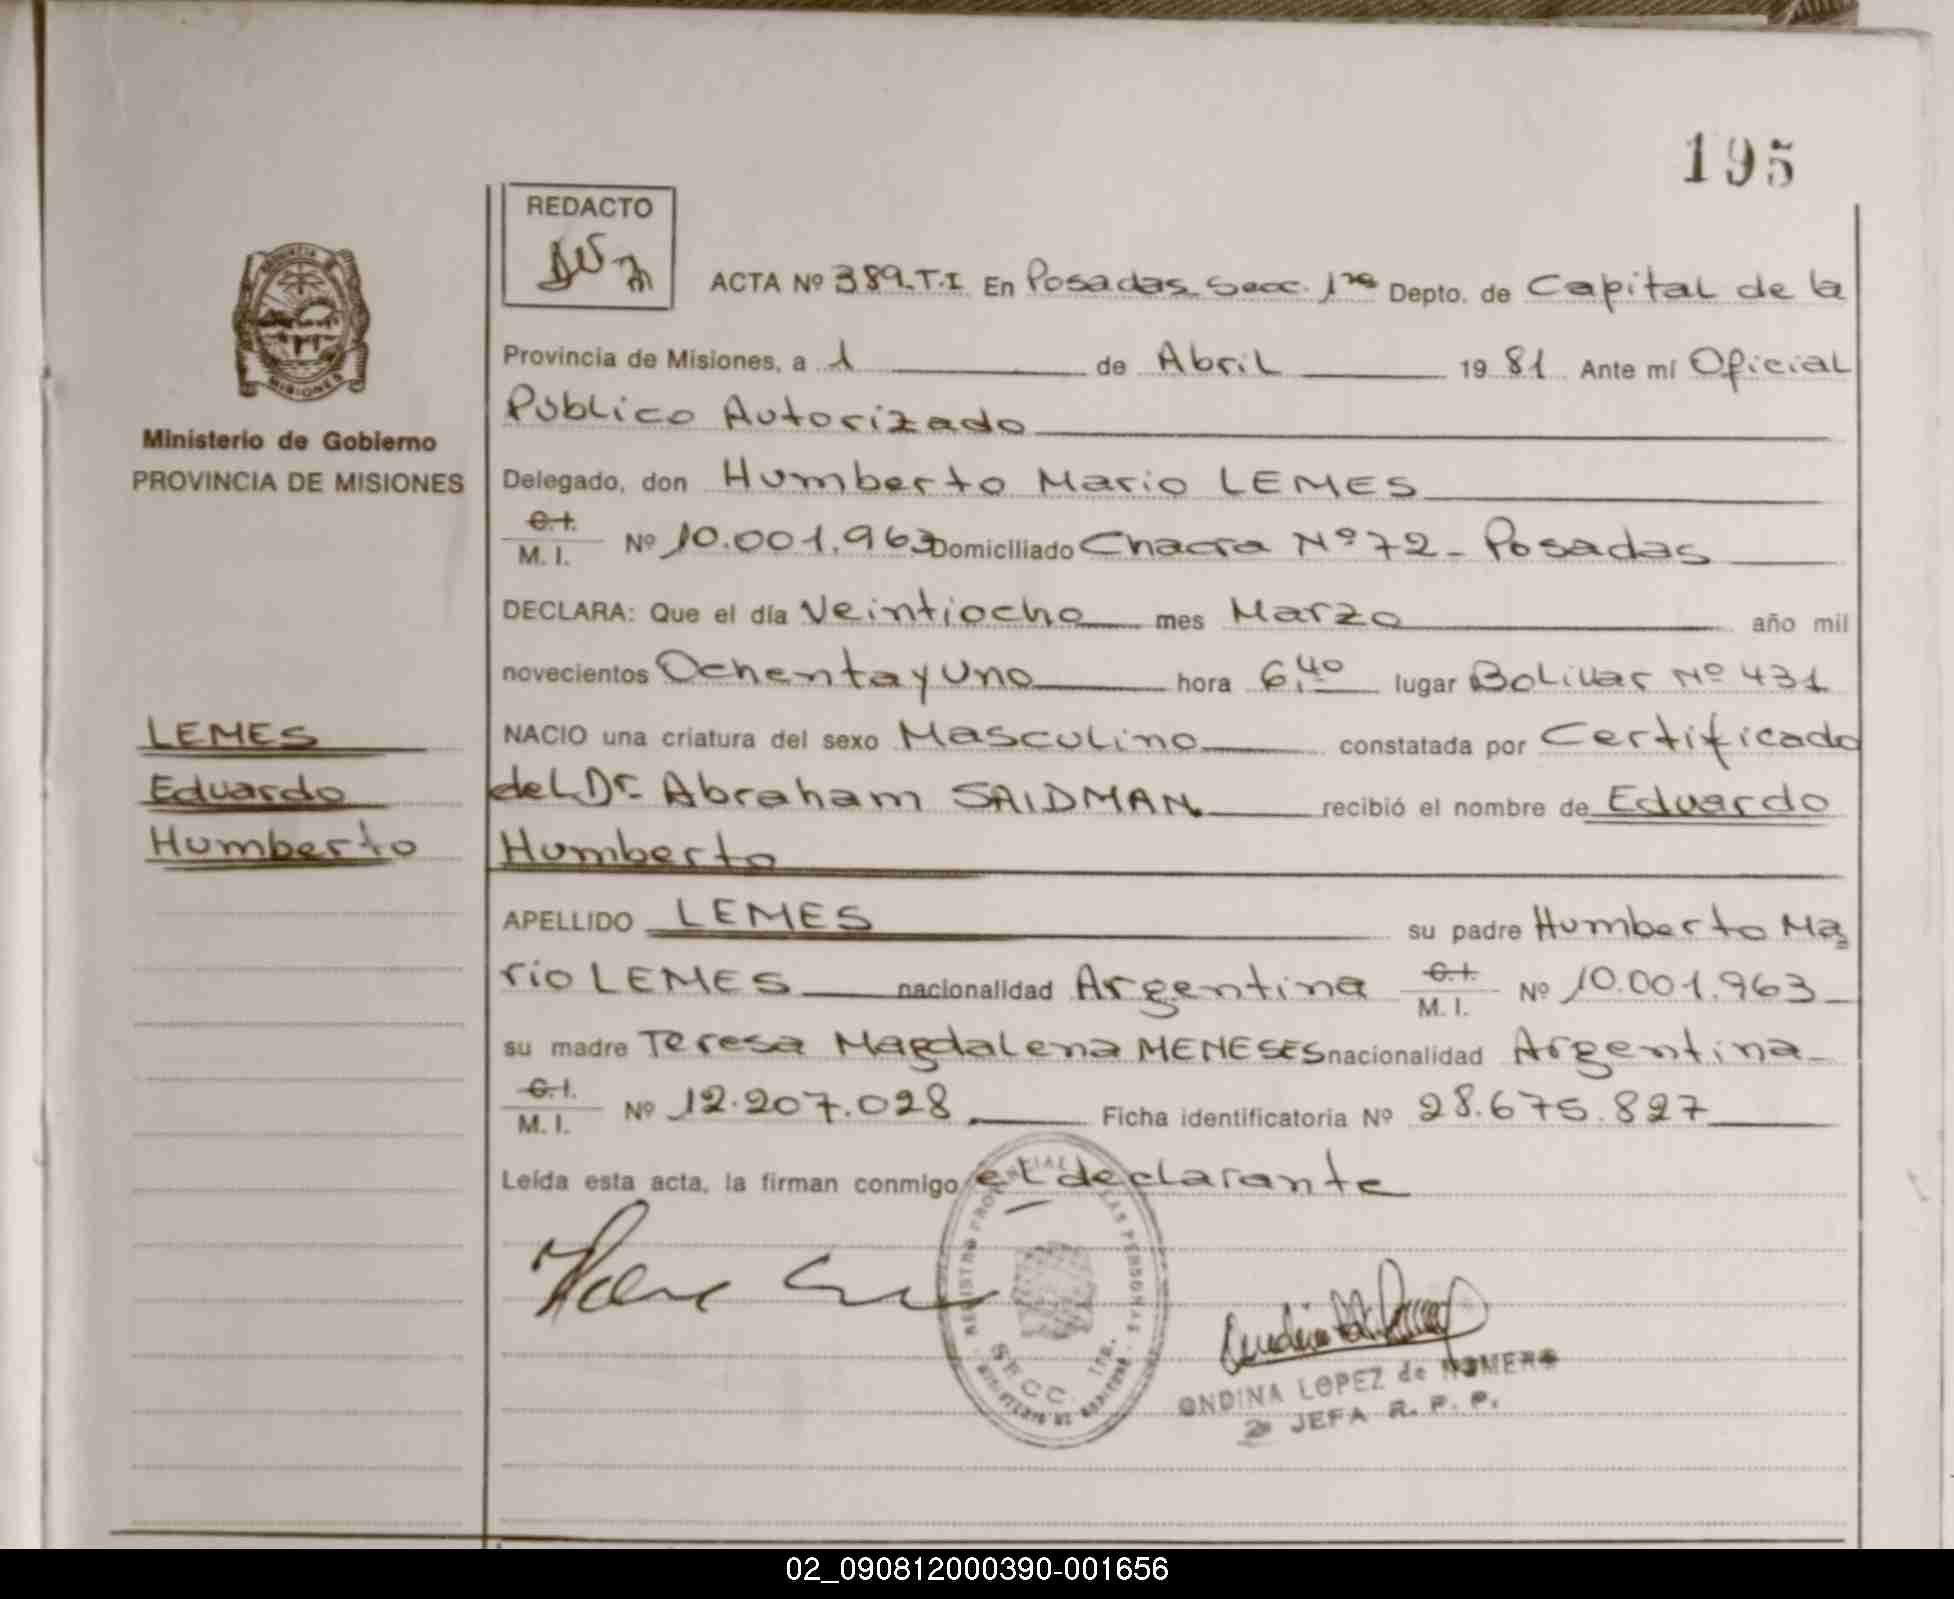 195
REDACTO
ACTA Nº 389.T.I En Posadas Secc. 1ra Depto. de Capital de la
Provincia de Misiones, a 1 de Abril 1981 Ante mí Oficial
Público Autorizado
Ministerio de Gobierno
PROVINCIA DE MISIONES
Delegado, don Humberto Mario LEMES
C.I.
M. I. Nº 10.001.963 Domiciliado Chacra Nº 72 - Posadas
DECLARA: Que el día Veintiocho mes Marzo año mil
novecientos Ochenta y Uno hora 6,40 lugar Bolivar Nº 431
LEMES
Eduardo
Humberto
NACIO una criatura del sexo Masculino constatada por Certificado
del Dr. Abraham SAIDMAN recibió el nombre de Eduardo
Humberto
APELLIDO LEMES su padre Humberto Ma
rio LEMES nacionalidad Argentina C.I. M. I. Nº 10.001.963
su madre Teresa Magdalena MENESES nacionalidad Argentina
C.I.
M. I. Nº 12.207.028 Ficha identificatoria Nº 28.675.827
Leída esta acta, la firman conmigo el declarante
REGISTRO PROVINCIAL LAS PERSONAS
SECC. 1ra.
ONDINA LOPEZ de ROMERO
JEFA R. P. P.
02_090812000390-001656